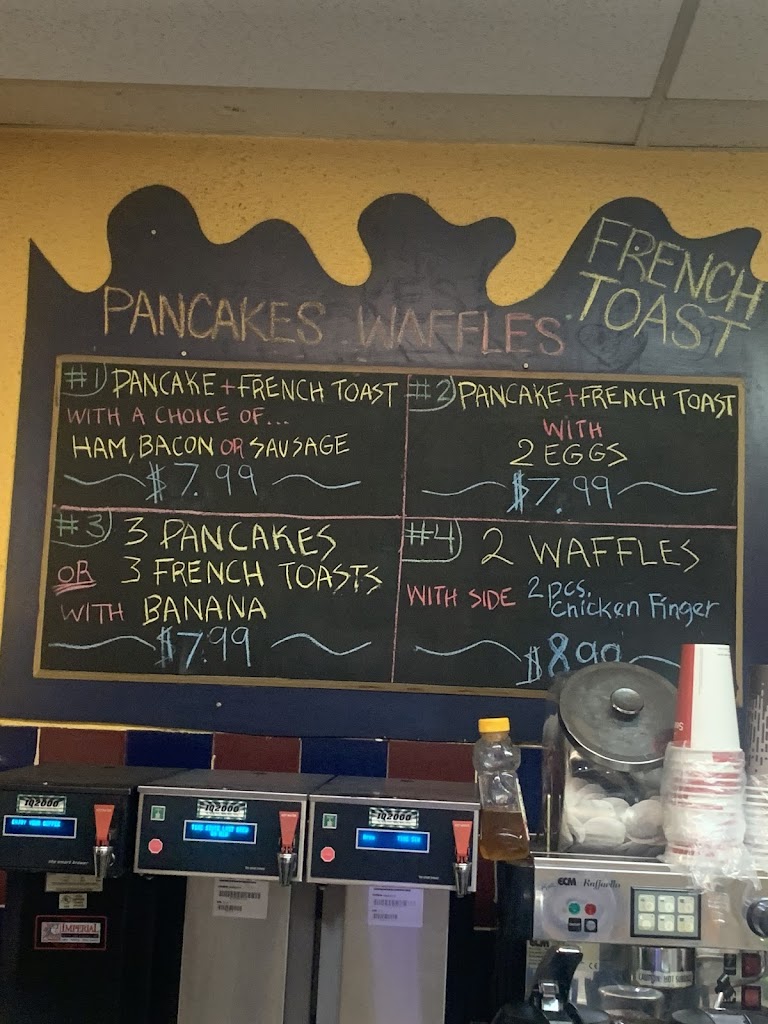 PANCAKES WAFFLES
FRENCH
TOAST
#1 PANCAKE + FRENCH TOAST
WITH A CHOICE OF...
HAM, BACON OR SAUSAGE
$7.99
#2 PANCAKE + FRENCH TOAST
WITH
2 EGGS
$7.99
#3 3 PANCAKES
OR 3 FRENCH TOASTS
WITH BANANA
$7.99
#4 2 WAFFLES
WITH SIDE 2 pcs.
Chicken Finger
$8.99
IQ2000
IQ2000
IQ2000
ENJOY YOUR COFFEE
IMPERIAL
ECM Raffaello
ECM